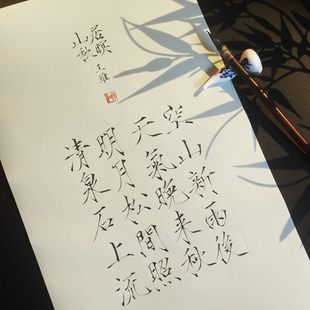 山居
秋暝
王維
空山新雨後
天氣晚来秋
明月松間照
清泉石上流